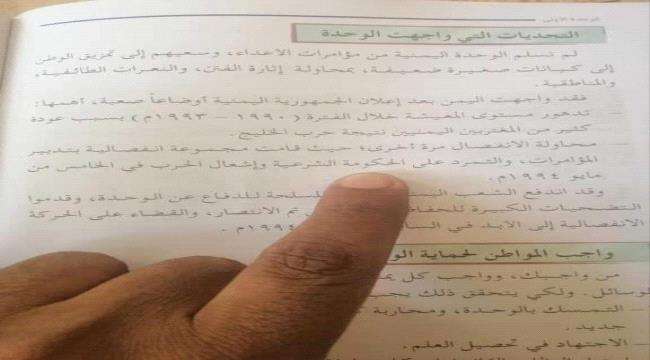 الوحدة الأولى
التحديات التي واجهت الوحدة
لم تسلم الوحدة اليمنية من مؤامرات الأعداء، وسعيهم إلى تمزيق الوطن
إلى كيانات صغيرة ضعيفة، بمحاولة إثارة الفتن، والنعرات الطائفية،
والمناطقية.
فقد واجهت اليمن بعد إعلان الجمهورية اليمنية أوضاعاً صعبة، أهمها:
– تدهور مستوى المعيشة خلال الفترة (١٩٩٠ – ١٩٩٣م) بسبب عودة
كثير من المغتربين اليمنيين نتيجة حرب الخليج.
– محاولة الانفصال مرة أخرى؛ حيث قامت مجموعة انفصالية بتدبير
المؤامرات، والتمرد على الحكومة الشرعية وإشعال الحرب في الخامس من
مايو ١٩٩٤م.
وقد اندفع الشعب للدفاع عن الوحدة، وقدموا
التضحيات الكبيرة تم الانتصار، والقضاء على الحركة
الانفصالية إلى الأبد في
واجب المواطن لحماية
من واجبك، وواجب كل
الوسائل. ولكي يتحقق ذلك يجب
– التمسك بالوحدة، ومحاربة
جديد.
– الاجتهاد في تحصيل العلم.